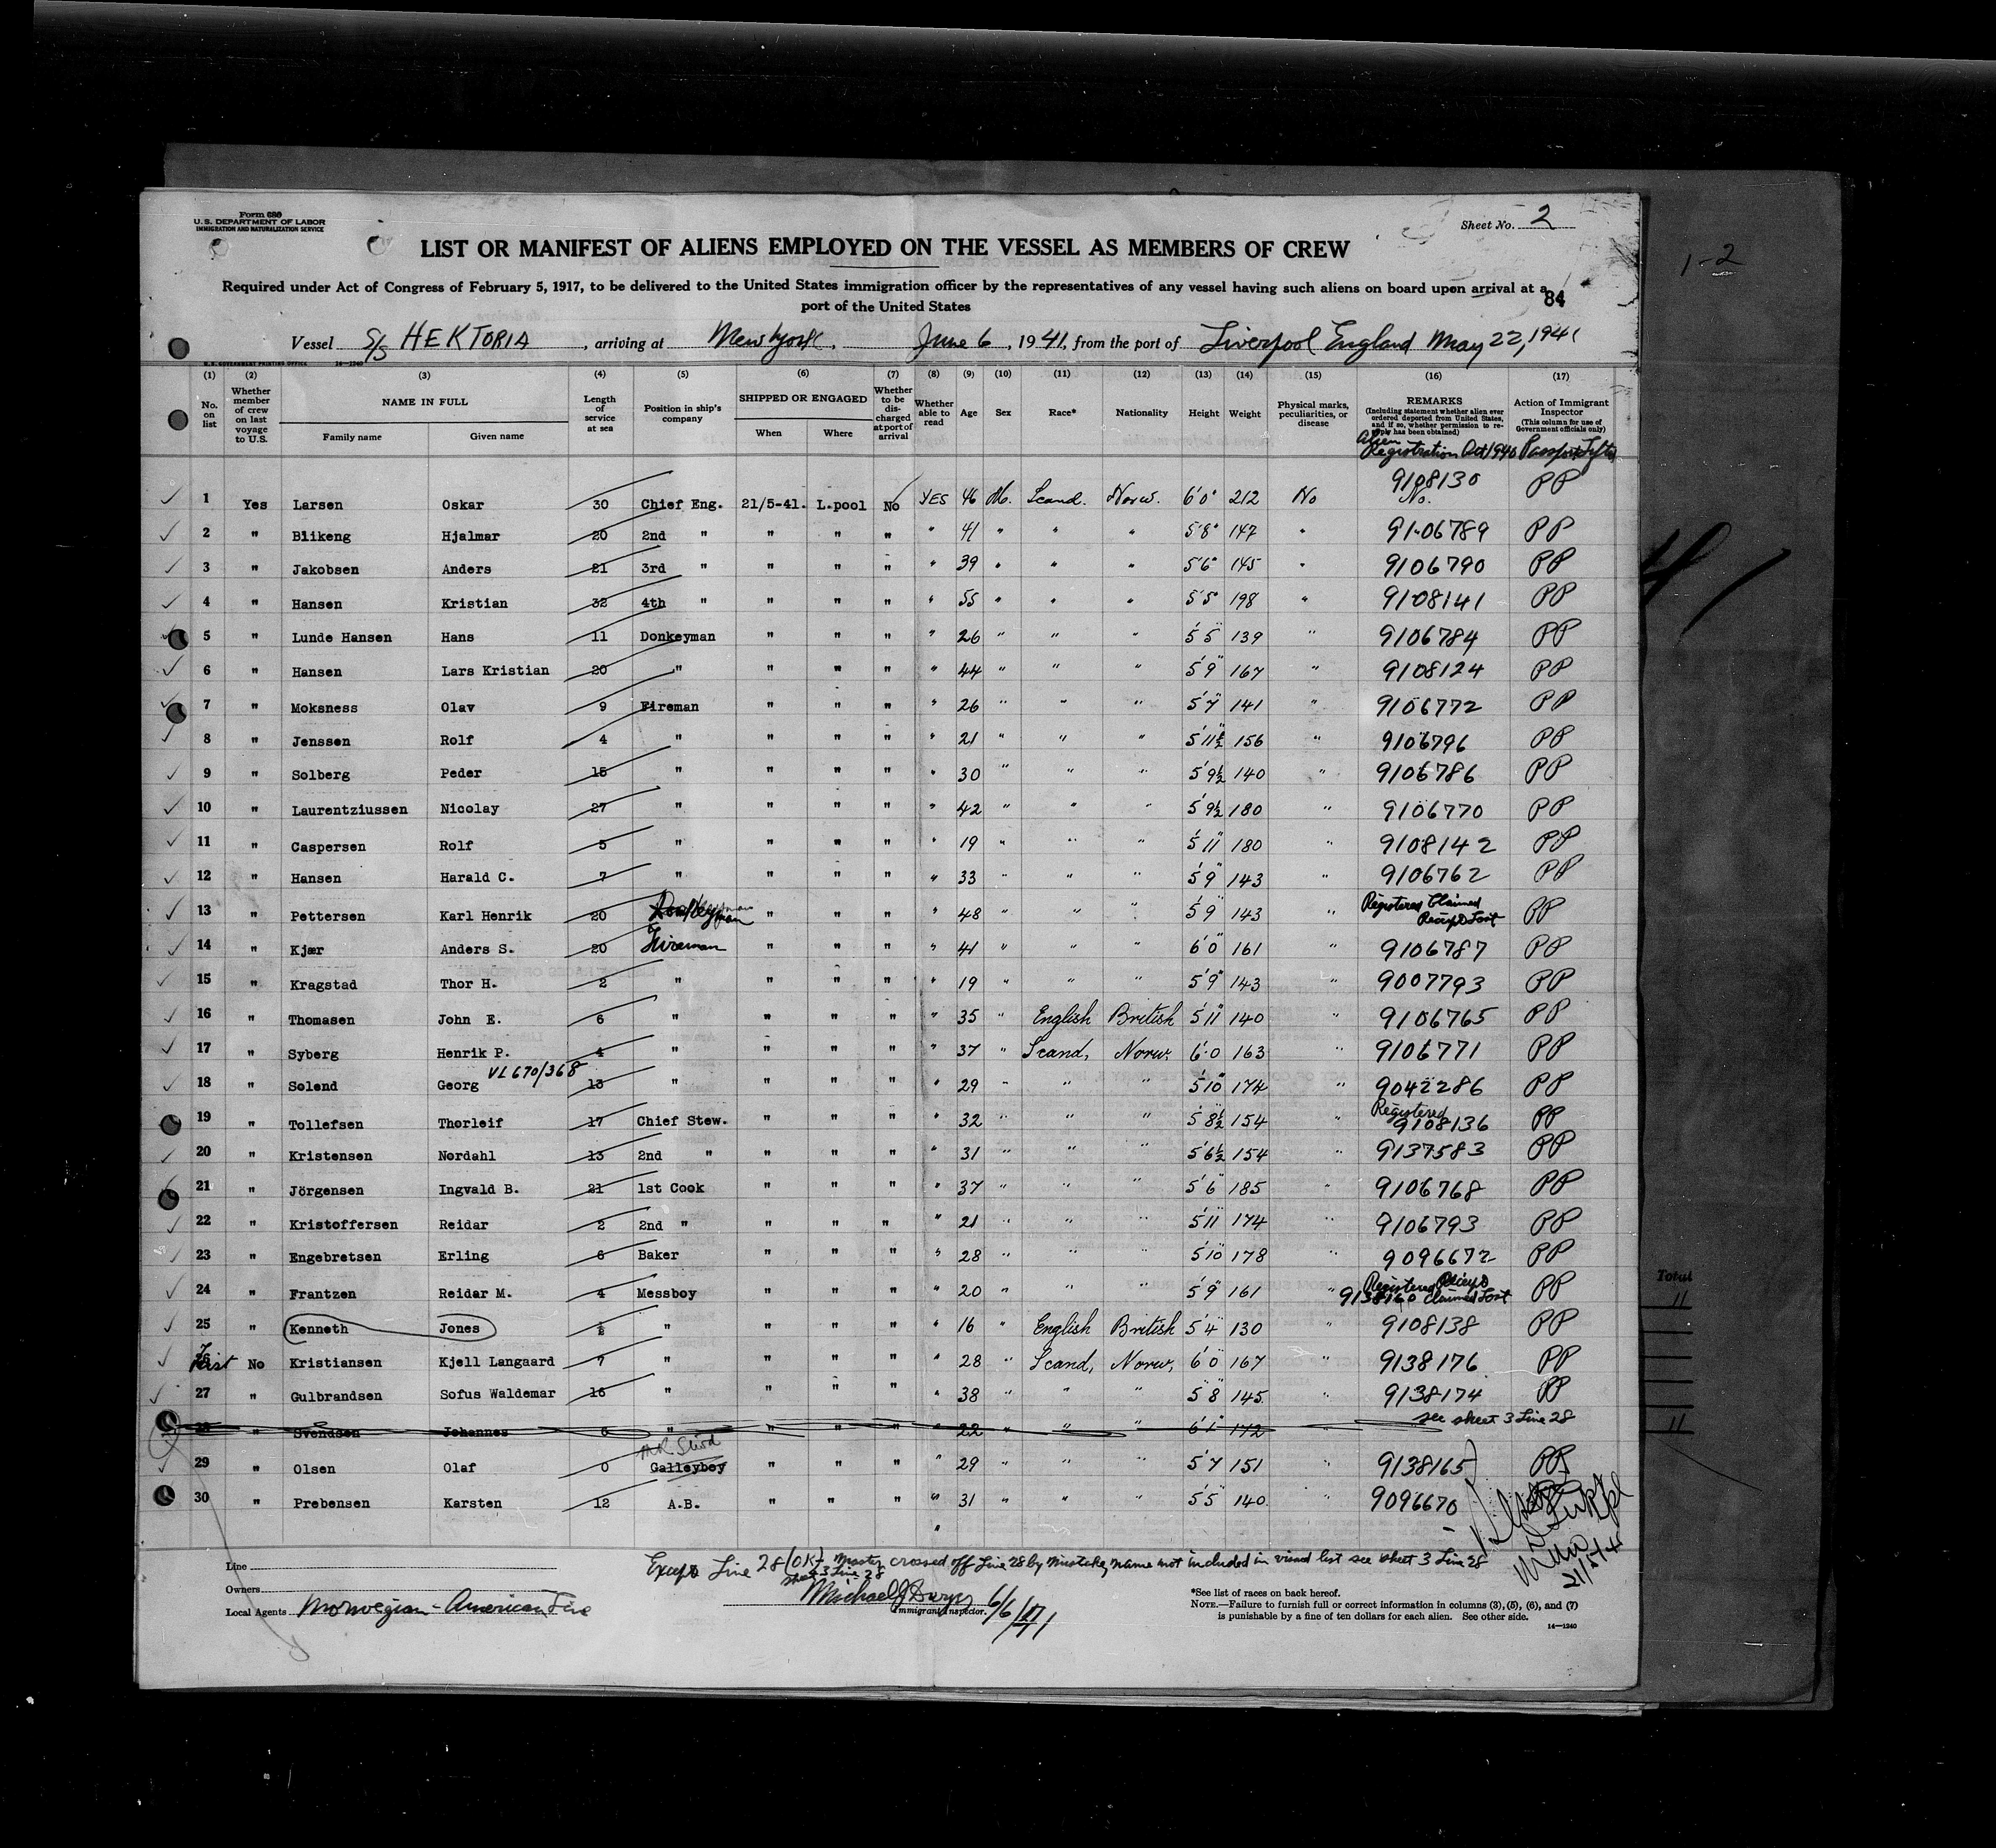 Form 680
U. S. DEPARTMENT OF LABOR
IMMIGRATION AND NATURALIZATION SERVICE
Sheet No. 2
1-2
LIST OR MANIFEST OF ALIENS EMPLOYED ON THE VESSEL AS MEMBERS OF CREW
Required under Act of Congress of February 5, 1917, to be delivered to the United States immigration officer by the representatives of any vessel having such aliens on board upon arrival at a
port of the United States
84
Vessel S/S HEKTORIA, arriving at New York, June 6, 1941, from the port of Liverpool England May 22, 1941
U.S. GOVERNMENT PRINTING OFFICE 14-1240
(1) (2) (3) (4) (5) (6) (7) (8) (9) (10) (11) (12) (13) (14) (15) (16) (17)
No. on list Whether member of crew on last voyage to U.S. NAME IN FULL Family name Given name Length of service at sea Position in ship's company SHIPPED OR ENGAGED When Where Whether to be discharged at port of arrival Whether able to read Age Sex Race* Nationality Height Weight Physical marks, peculiarities, or disease REMARKS (Including statement whether alien ever ordered deported from United States, and if so, whether permission to reapply has been obtained) Action of Immigrant Inspector (This column for use of Government officials only)
Alien Registration Oct 1940 Passport
1 Yes Larsen Oskar 30 Chief Eng. 21/5-41. L.pool No YES 46 M. Scand. Norw. 6'0" 212 No 9108130 No. PP
2 " Blikeng Hjalmar 20 2nd " " " " " 41 " " " 5'8" 147 " 9106789 PP
3 " Jakobsen Anders 21 3rd " " " " " 39 " " " 5'6" 145 " 9106790 PP
4 " Hansen Kristian 32 4th " " " " " 55 " " " 5'5" 198 " 9108141 PP
5 " Lunde Hansen Hans 11 Donkeyman " " " " 26 " " " 5'5" 139 " 9106784 PP
6 " Hansen Lars Kristian 20 " " " " " 44 " " " 5'9" 167 " 9108124 PP
7 " Moksness Olav 9 Fireman " " " " 26 " " " 5'7" 141 " 9106772 PP
8 " Jenssen Rolf 4 " " " " " 21 " " " 5'11½ 156 " 9106796 PP
9 " Solberg Peder 15 " " " " " 30 " " " 5'9½ 140 " 9106786 PP
10 " Laurentziussen Nicolay 27 " " " " " 42 " " " 5'9½ 180 " 9106770 PP
11 " Caspersen Rolf 5 " " " " " 19 " " " 5'11" 180 " 9108142 PP
12 " Hansen Harald C. 7 " " " " " 33 " " " 5'9" 143 " 9106762 PP
13 " Pettersen Karl Henrik 20 Donkeyman " " " " 48 " " " 5'9" 143 " Registered Claimed Receipt Lost PP
14 " Kjær Anders S. 20 Fireman " " " " 41 " " " 6'0" 161 " 9106787 PP
15 " Kragstad Thor H. 2 " " " " " 19 " " " 5'9" 143 " 9007793 PP
16 " Thomasen John E. 6 " " " " " 35 " English British 5'11" 140 " 9106765 PP
17 " Syberg Henrik P. 4 " " " " " 37 " Scand, Norw. 6'0 163 " 9106771 PP
VL670/368
18 " Solend Georg 13 " " " " " 29 " " " 5'10" 174 " 9042286 PP
19 " Tollefsen Thorleif 17 Chief Stew. " " " " 32 " " " 5'8½ 154 " Registered 9108136 PP
20 " Kristensen Nordahl 13 2nd " " " " " 31 " " " 5'6½ 154 " 9137583 PP
21 " Jörgensen Ingvald B. 21 1st Cook " " " " 37 " " " 5'6" 185 " 9106768 PP
22 " Kristoffersen Reidar 2 2nd " " " " " 21 " " " 5'11" 174 " 9106793 PP
23 " Engebretsen Erling 6 Baker " " " " 28 " " " 5'10" 178 " 9096672 PP
24 " Frantzen Reidar M. 4 Messboy " " " " 20 " " " 5'9" 161 " Registered Receipt 9138160 Claimed Lost PP
25 " Kenneth Jones ½ " " " " " 16 " English British 5'4" 130 " 9108138 PP
26 First No Kristiansen Kjell Langaard 7 " " " " " 28 " Scand, Norw. 6'0" 167 " 9138176 PP
27 " Gulbrandsen Sofus Waldemar 16 " " " " " 38 " " " 5'8" 145 " 9138174 PP
28 " Svendsen Johannes 6 " " " " " 22 " " " 6'1" 172 see sheet 3 Line 28
29 " Olsen Olaf 0 Galleyboy " " " " 29 " " " 5'7" 151 " 9138165 PP
30 " Prebensen Karsten 12 A.B. " " " " 31 " " " 5'5" 140 " 9096670
21/5/41
Total
11
11
Line
Except Line 28 (OK) Master crossed off Line 28 by mistake, name not included in visaed list see sheet 3 Line 28
sheet 3 Line 28
Owners
Local Agents Norwegian-American Line
Immigrant Inspector. 6/6/41
*See list of races on back hereof.
NOTE.—Failure to furnish full or correct information in columns (3), (5), (6), and (7)
is punishable by a fine of ten dollars for each alien. See other side.
14-1240